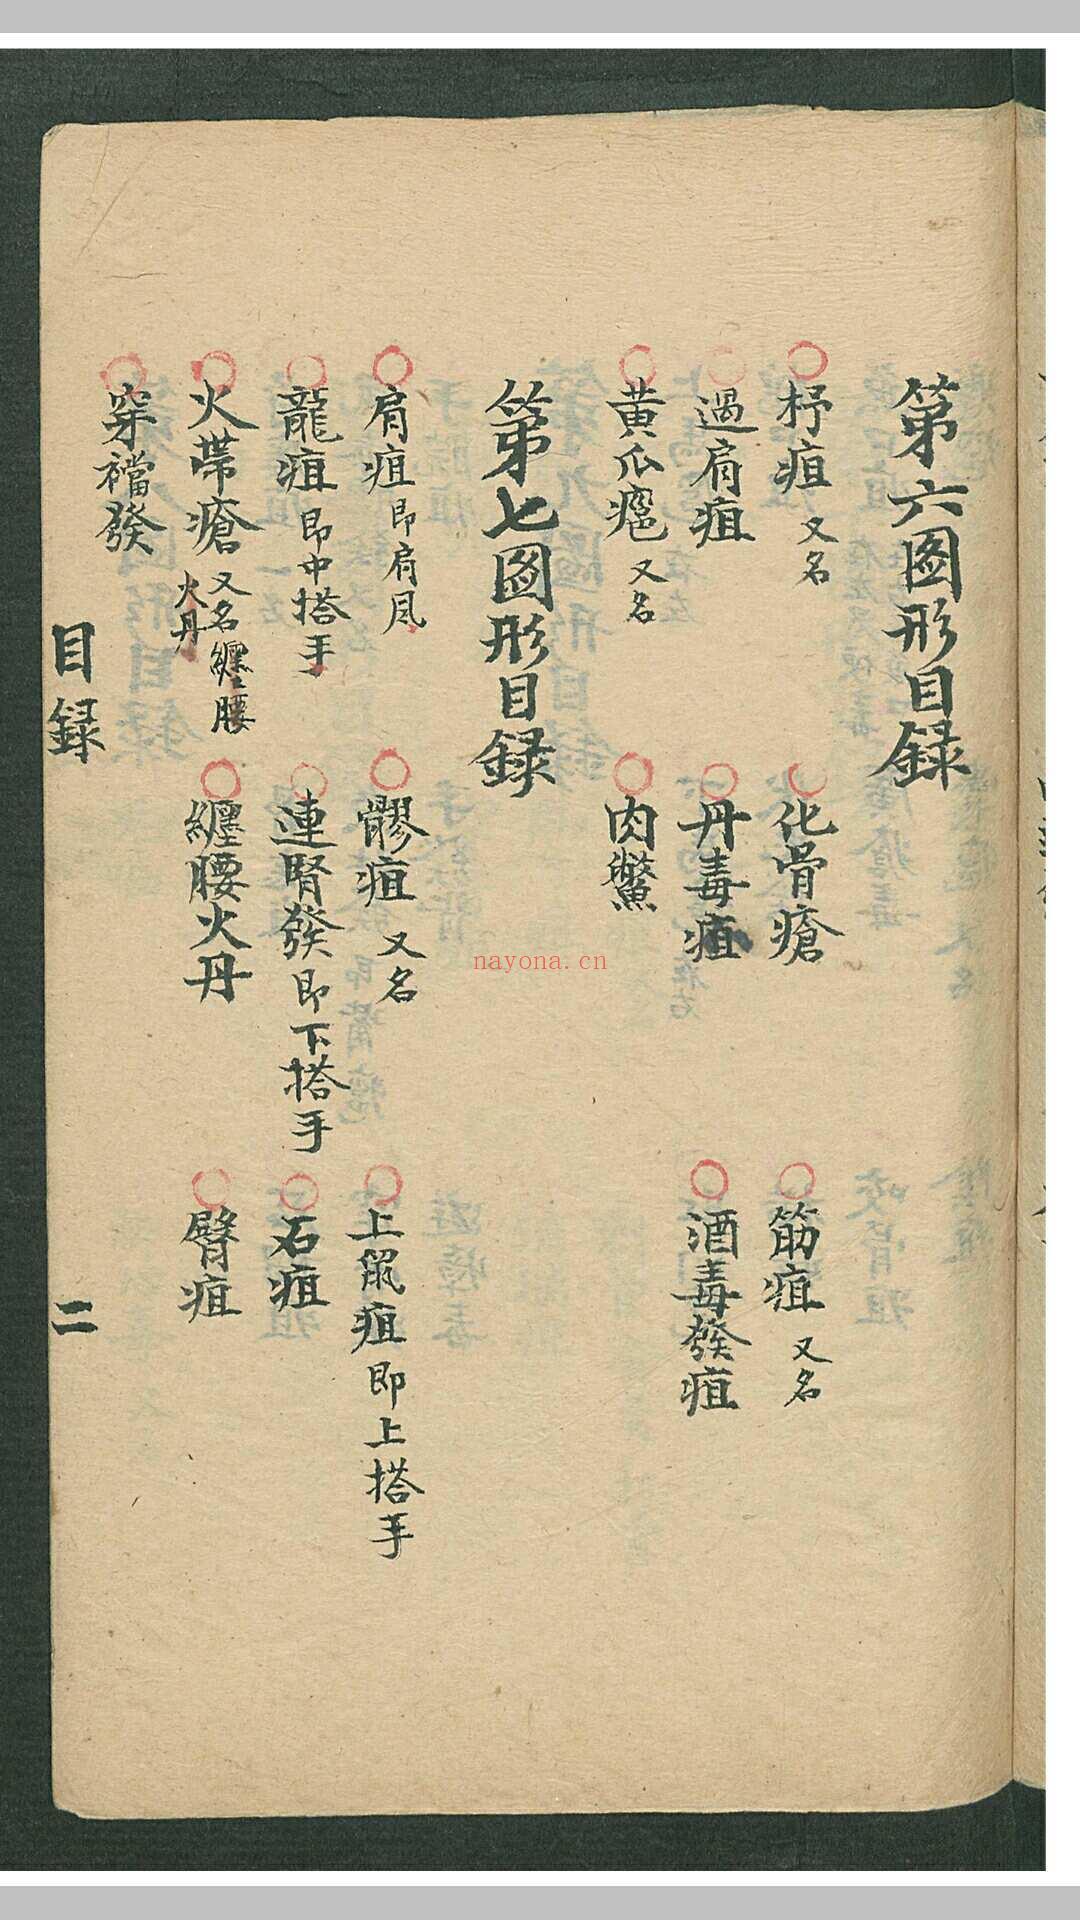 第六圖形目録
杼疽 又名
化骨瘡
筋疽 又名
過肩疽
丹毒疽
酒毒發疽
黄瓜癰 又名
肉鱉
第七圖形目録
肩疽 即肩风
髎疽 又名
上鼠疽 即上搭手
龍疽 即中搭手
連腎發 即下搭手
石疽
火帶瘡 又名纏腰火丹
纏腰火丹
臂疽
穿襠發
目録
二
nayona.cn